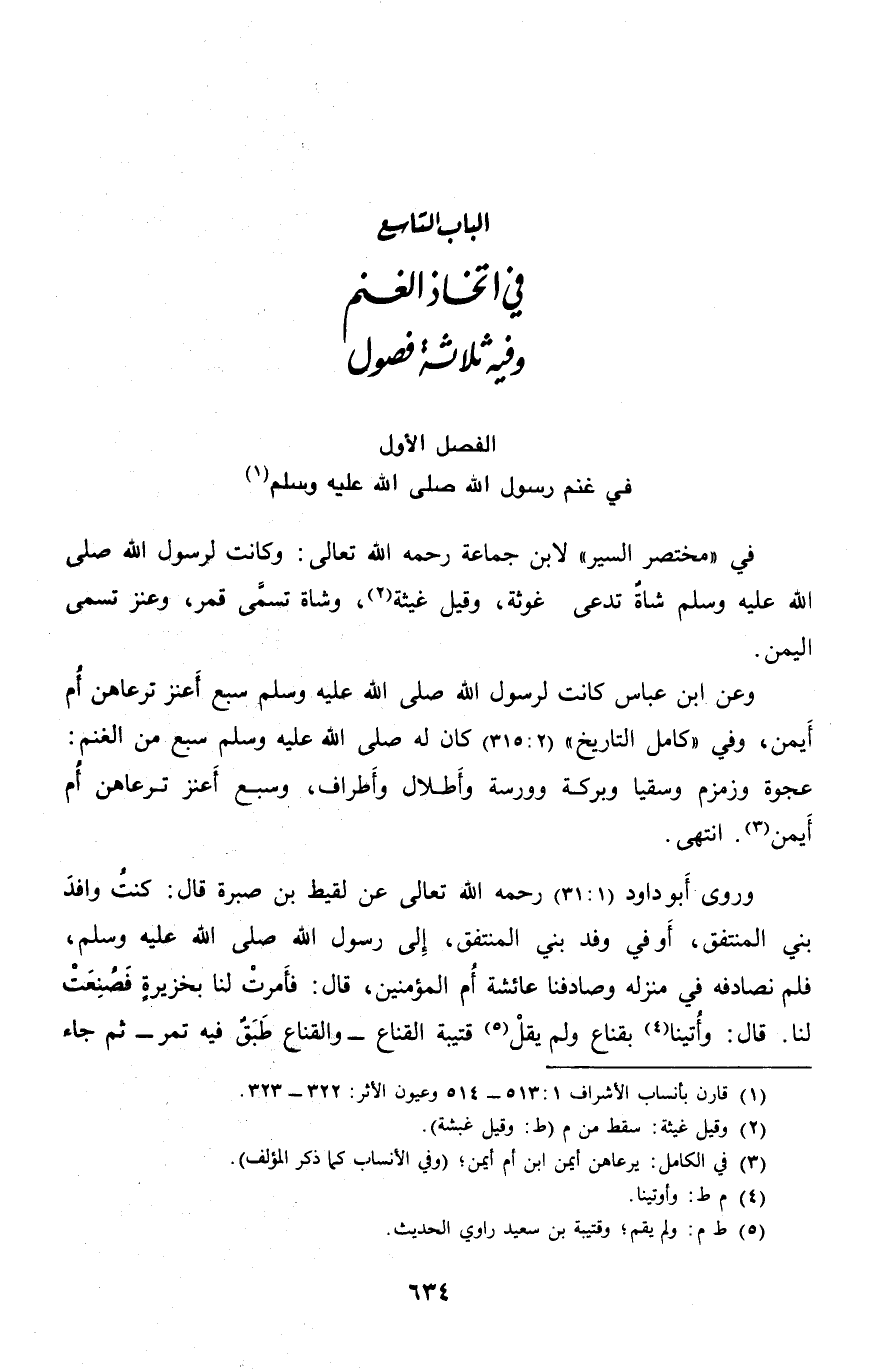 الباب التاسع
في اتخاذ الغنم
وفيه ثلاثة فصول
الفصل الأول
في غنم رسول الله صلى الله عليه وسلم(١)
في «مختصر السير» لابن جماعة رحمه الله تعالى: وكانت لرسول الله صلى
الله عليه وسلم شاةٌ تدعى غوثة، وقيل غيثة(٢)، وشاة تسمَّى قمر، وعنز تسمى
اليمن.
وعن ابن عباس كانت لرسول الله صلى الله عليه وسلم سبع أَعنز ترعاهن أُم
أَيمن، وفي «كامل التاريخ» (٢:‏٣١٥) كان له صلى الله عليه وسلم سبع من الغنم:
عجوة وزمزم وسقيا وبركة وورسة وأَطلال وأَطراف، وسبع أَعنز ترعاهن أُم
أَيمن(٣). انتهى.
وروى أَبو داود (١:‏٣١) رحمه الله تعالى عن لقيط بن صبرة قال: كنتُ وافدَ
بني المنتفق، أَو في وفد بني المنتفق، إِلى رسول الله صلى الله عليه وسلم،
فلم نصادفه في منزله وصادفنا عائشة أُم المؤمنين، قال: فأَمرتْ لنا بخزيرةٍ فَصُنِعَتْ
لنا. قال: وأُتينا(٤) بقناع ولم يقلْ(٥) قتيبة القناع ــ والقناع طَبَقٌ فيه تمر ــ ثم جاء
(١) قارن بأنساب الأشراف ١:‏٥١٣ ــ ٥١٤ وعيون الأثر: ٣٢٢ ــ ٣٢٣.
(٢) وقيل غيثة: سقط من م (ط: وقيل غبشة).
(٣) في الكامل: يرعاهن أيمن ابن أم أيمن؛ (وفي الأنساب كما ذكر المؤلف).
(٤) م ط: وأوتينا.
(٥) ط م: ولم يقم؛ وقتيبة بن سعيد راوي الحديث.
٦٣٤